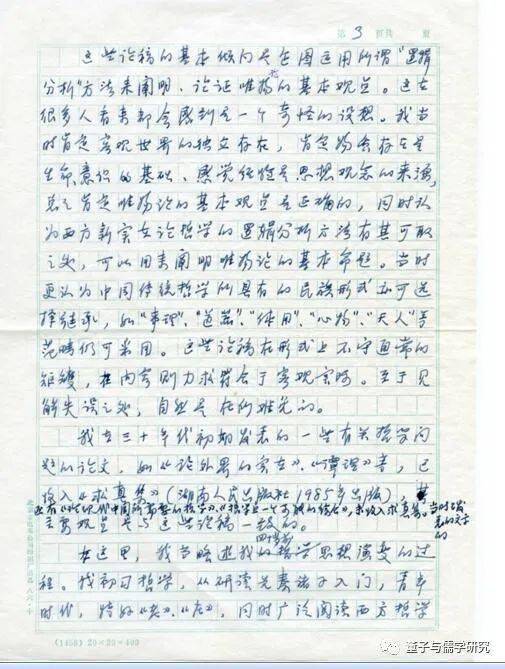 第 3 页共 页
这些论稿的基本倾向是企图运用所谓“逻辑
分析”方法来阐明、论证唯物论的基本观点。这在
很多人看来都会感到是一个奇怪的设想。我当
时肯定客观世界的独立存在，肯定物质存在是
生命、意识的基础、感觉经验是思想观念的来源，
总之肯定唯物论的基本观点是正确的，同时认
为西方新实在论哲学的逻辑分析方法有其可取
之处，可以用来阐明唯物论的基本命题。当时
更认为中国传统哲学所具有的民族形式亦可选
择继承，如“事理”、“道器”、“体用”、“心物”、“天人”等
范畴仍可采用。这些论稿在形式上不守通常的
矩矱，在内容则力求符合于客观实际。至于见
解失误之处，自然是在所难免的。
我在三十年代初期发表的一些有关哲学问
题的论文，如《论外界的实在》、《谭理》等，已
收入《求真集》（湖南人民出版社1985年出版），其
主要观点是与这些论稿一致的。
在这里，我当略述我的哲学思想演变的过
程。我初习哲学，从研读先秦诸子入门，青年
时代，特好《老》、《庄》，同时广泛阅读西方哲学
(1456) 20×20=400
董子与儒学研究